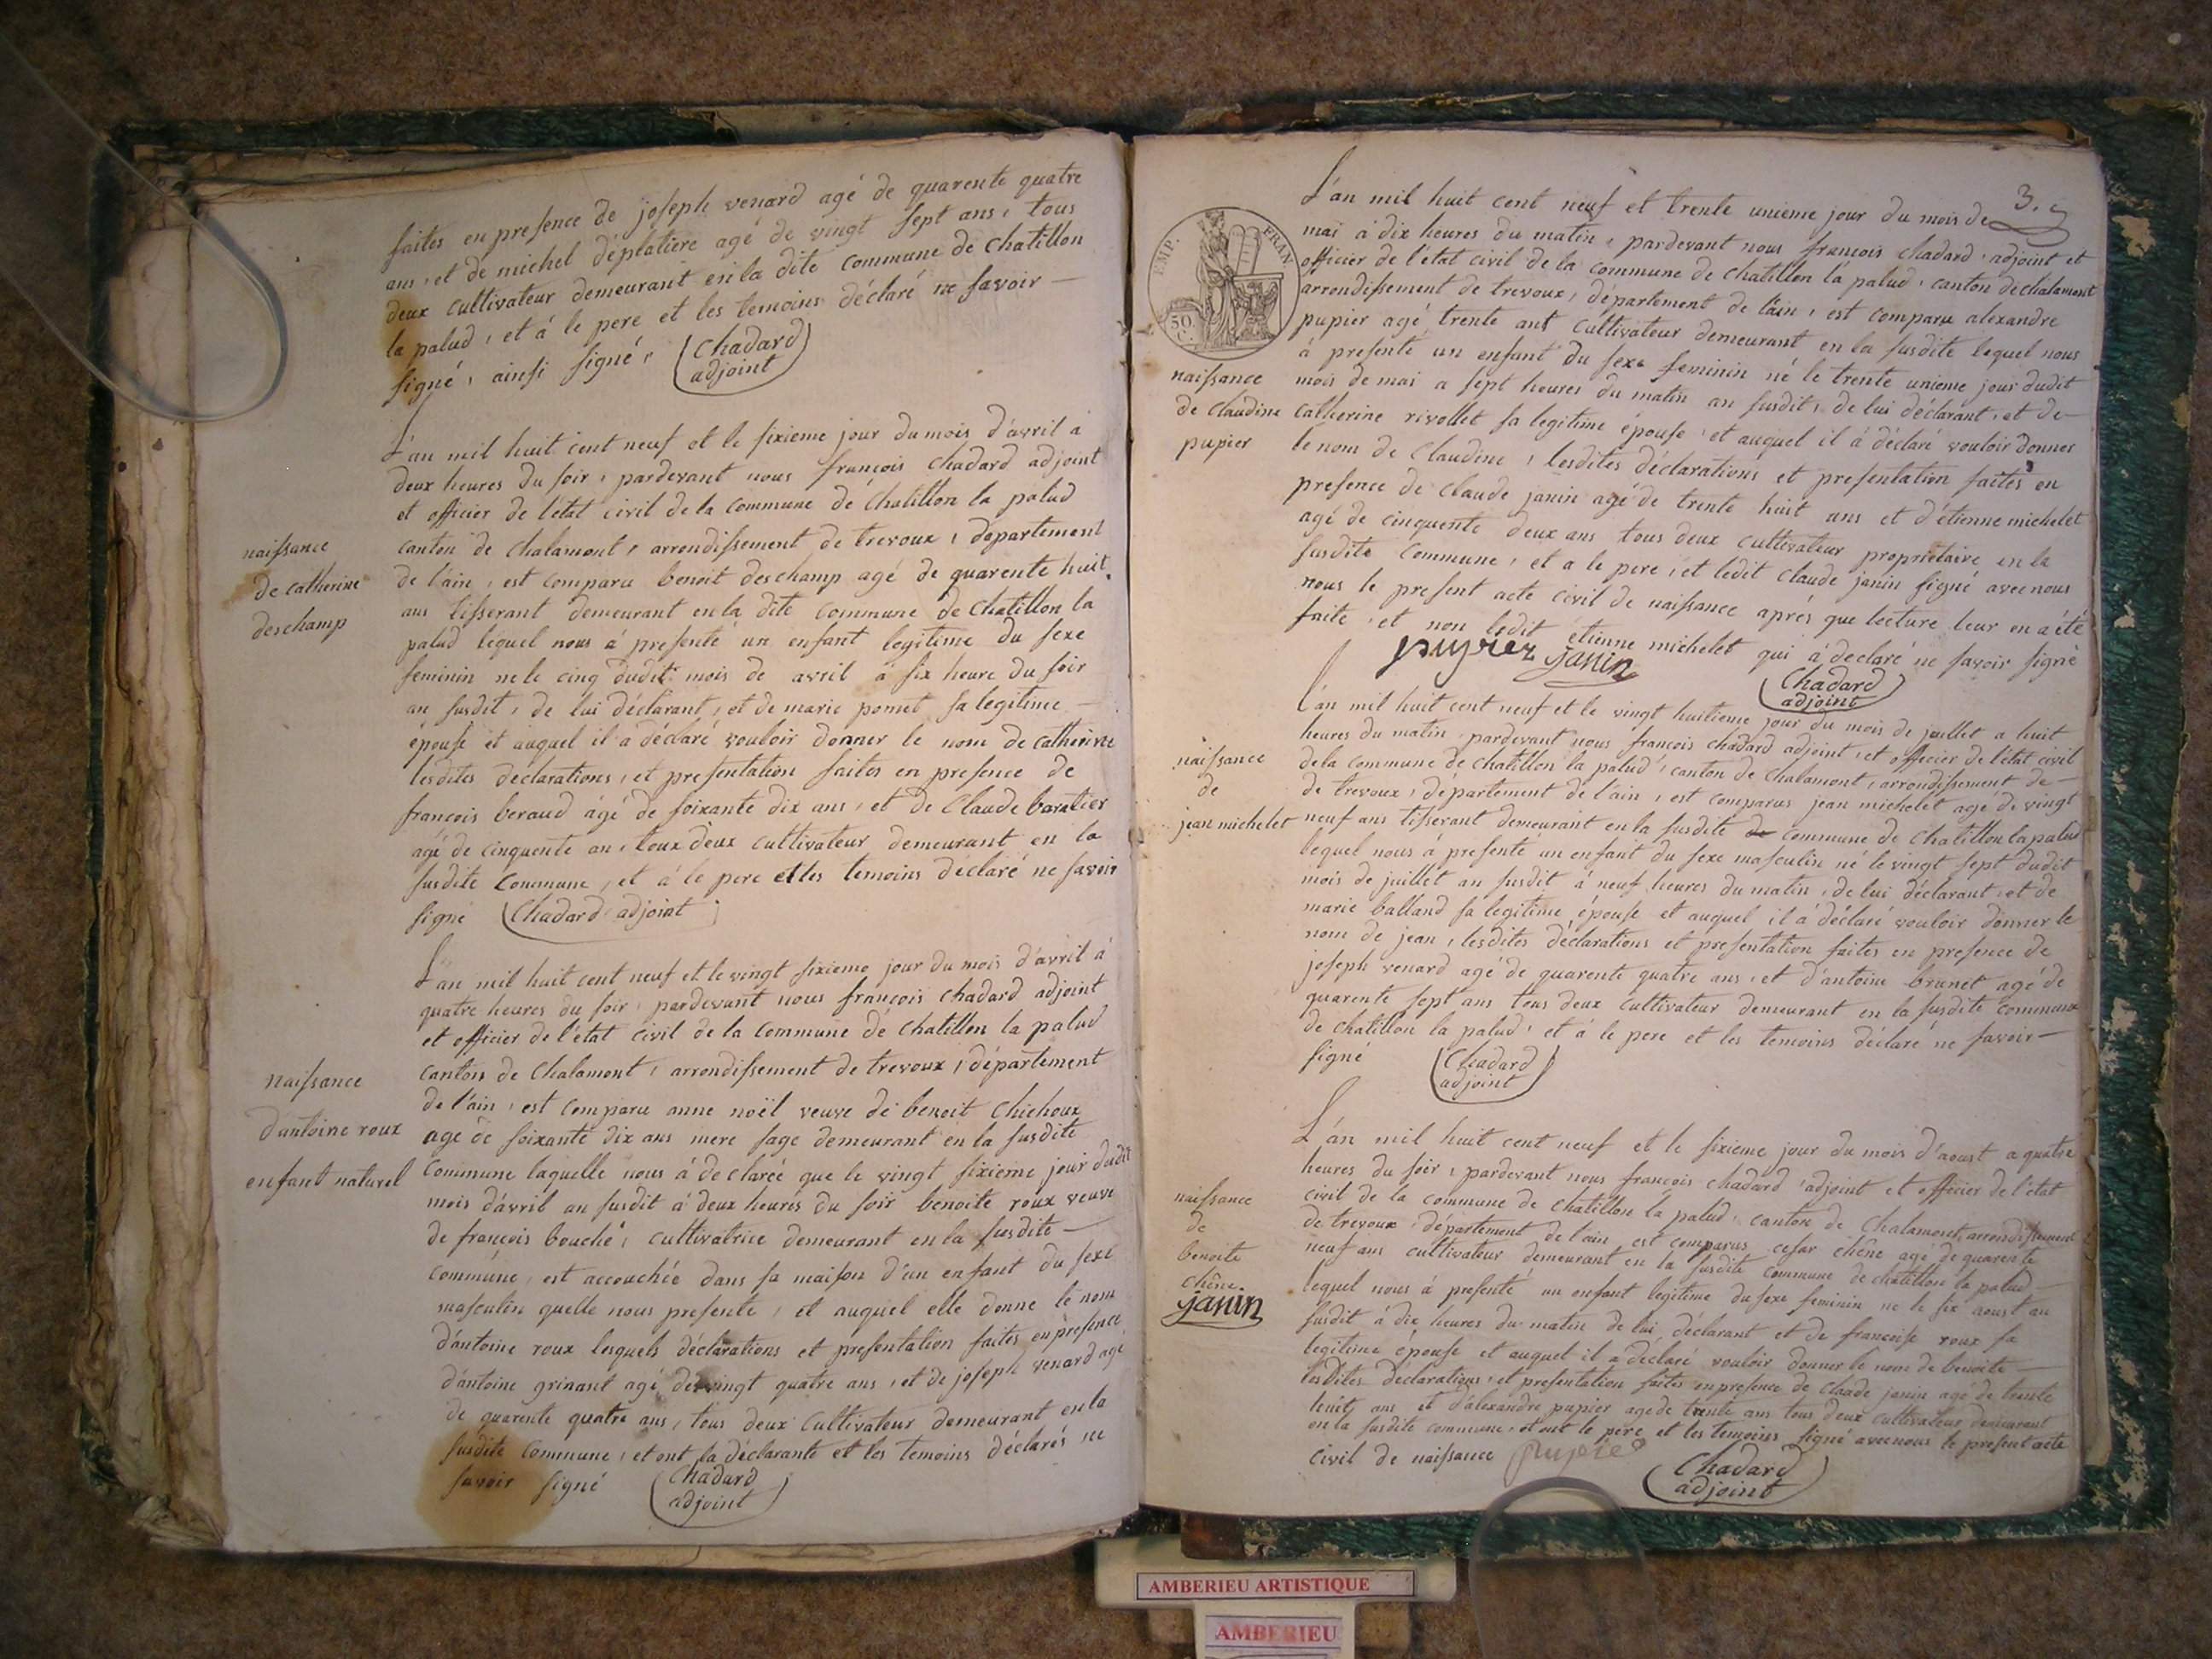 faites en presence de joseph venard agé de quarente quatre
ans, et de michel déplatiere agé de vingt sept ans, tous
deux cultivateur demeurant en la dite commune de chatillon
la palud, et à le pere et les temoins déclaré ne savoir —
signé, ainsi signé,
Chadard
adjoint
L'an mil huit cent neuf et le sixieme jour du mois d'avril à
deux heures du soir, pardevant nous françois chadard adjoint
et officier de l'état civil de la commune de chatillon la palud
canton de chalamont, arrondissement de trevoux, département
de l'ain, est comparu benoit deschamp agé de quarente huit
ans tisserant demeurant en la dite commune de chatillon la
palud lequel nous à presenté un enfant legitime du sexe
feminin ne le cinq dudit mois de avril à six heure du soir
an susdit, de lui déclarant, et de marie pomet sa legitime —
épouse et auquel il à déclaré vouloir donner le nom de catherine
lesdites déclarations, et presentation faites en presence de
françois beraud agé de soixante dix ans, et de claude baratier
agé de cinquente an, toux deux cultivateur demeurant en la
susdite commune, et à le pere et les temoins déclaré ne savoir
signé
Chadard adjoint
naissance
de catherine
deschamp
L'an mil huit cent neuf et le vingt sixieme jour du mois d'avril à
quatre heures du soir, pardevant nous françois chadard adjoint
et officier de l'état civil de la commune de chatillon la palud
canton de chalamont, arrondissement de trevoux, département
de l'ain, est comparu anne noël veuve de benoit chichoux
agé de soixante dix ans mere sage demeurant en la susdite
commune laquelle nous à declarée que le vingt sixieme jour dudit
mois d'avril an susdit à deux heures du soir benoite roux veuve
de françois bouché, cultivatrice demeurant en la susdite —
commune, est accouchée dans sa maison d'un enfant du sexe
masculin quelle nous presente, et auquel elle donne le nom
d'antoine roux lesquels déclarations et presentation faites en presence
d'antoine grinand agé de vingt quatre ans, et de joseph venard agé
de quarente quatre ans, tous deux cultivateur demeurant en la
susdite commune, et ont la déclarante et les temoins déclarés ne
savoir signé
Chadard
adjoint
naissance
d'antoine roux
enfant naturel
3.
EMP. FRAN
50
C.
L'an mil huit cent neuf et trente unieme jour du mois de
mai à dix heures du matin, pardevant nous françois chadard, adjoint et
officier de l'état civil de la commune de chatillon la palud, canton de chalamont
arrondissement de trevoux, département de l'ain, est comparu alexandre
pupier agé trente ans cultivateur demeurant en la susdite lequel nous
à presenté un enfant du sexe feminin né le trente unieme jour dudit
mois de mai a sept heures du matin an susdit, de lui déclarant, et de —
catherine rivollet sa legitime épouse, et auquel il à déclaré vouloir donner
le nom de claudine, lesdites déclarations et presentation faites en
presence de claude janin agé de trente huit ans et d'étienne michelet
agé de cinquente deux ans tous deux cultivateur proprietaire en la
susdite commune, et a le pere, et ledit claude janin signé avec nous
nous le present acte civil de naissance après que lecture leur en a été
faite, et non ledit étienne michelet qui à déclaré ne savoir signé
janin
Chadard
adjoint
naissance
de claudine
pupier
L'an mil huit cent neuf et le vingt huitieme jour du mois de juillet a huit
heures du matin, pardevant nous françois chadard adjoint, et officier de l'état civil
de la commune de chatillon la palud, canton de chalamont, arrondissement de —
de trevoux, département de l'ain, est comparus jean michelet agé de vingt
neuf ans tisserant demeurant en la susdite de commune de chatillon la palud
lequel nous à presenté un enfant du sexe masculin né le vingt sept dudit
mois de juillet an susdit à neuf heures du matin, de lui déclarant, et de
marie balland sa legitime épouse et auquel il à déclaré vouloir donner le
nom de jean, lesdites déclarations et presentation faites en presence de
joseph venard agé de quarente quatre ans, et d'antoine brunet agé de
quarente sept ans tous deux cultivateur demeurant en la susdite commune
de chatillon la palud, et à le pere et les temoins déclaré ne savoir —
signé
Chadard
adjoint
naissance
de
jean michelet
L'an mil huit cent neuf et le sixieme jour du mois d'aoust a quatre
heures du soir, pardevant nous françois chadard, adjoint et officier de l'état
civil de la commune de chatillon la palud, canton de chalamont, arrondissement
de trevoux, département de l'ain, est comparus cesar chêne agé de quarente
neuf ans cultivateur demeurant en la susdite commune de chatillon la palud
lequel nous à presenté un enfant legitime du sexe feminin ne le six aoust an
susdit à dix heures du matin de lui déclarant et de françoise roux sa
legitime épouse et auquel il a déclaré vouloir donner le nom de benoite —
lesdites déclarations, et presentation faites en presence de claude janin agé de trente
huit ans et d'alexandre pupier agé de trente ans tous deux cultivateur demeurant
en la susdite commune, et ont le pere et les temoins signé avec nous le present acte
civil de naissance
Chadard
adjoint
naissance
de
benoite
chêne
janin
AMBERIEU ARTISTIQUE
AMBERIEU